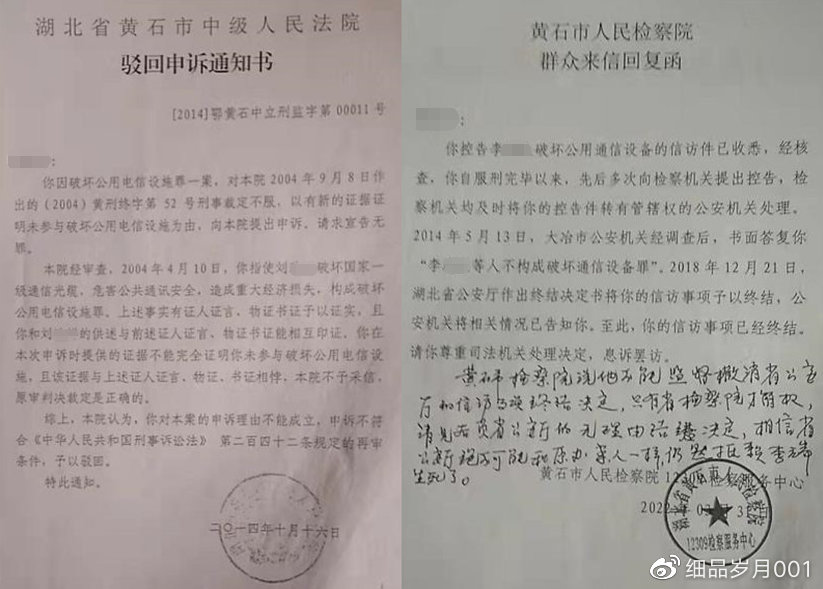 湖北省黄石市中级人民法院
驳回申诉通知书
[2014]鄂黄石中立刑监字第00011号
:
你因破坏公用电信设施罪一案,对本院2004年9月8日作
出的(2004)黄刑终字第52号刑事裁定不服,以有新的证据证
明未参与破坏公用电信设施为由,向本院提出申诉,请求宣告无
罪。
本院经审查,2004年4月10日,你指使刘 破坏国家一
级通信光缆,危害公共通讯安全,造成重大经济损失,构成破坏
公用电信设施罪。上述事实有证人证言、物证书证予以证实,且
你和刘 的供述与前述证人证言、物证书证能相互印证。你在
本次申诉时提供的证据不能完全证明你未参与破坏公用电信设
施,且该证据与上述证人证言、物证、书证相悖,本院不予采信,
原审判决裁定是正确的。
综上,本院认为,你对本案的申诉理由不能成立,申诉不符
合《中华人民共和国刑事诉讼法》第二百四十二条规定的再审
条件,予以驳回。
特此通知。
二〇一四年十月十六日
黄石市人民检察院
群众来信回复函
:
你控告李 破坏公用通信设备的信访件已收悉,经核
查,你自服刑完毕以来,先后多次向检察机关提出控告,检
察机关均及时将你的控告件转有管辖权的公安机关处理。
2014年5月13日,大冶市公安机关经调查后,书面答复你
“李 等人不构成破坏通信设备罪”。2018年12月21日,
湖北省公安厅作出终结决定书将你的信访事项予以终结,公
安机关将相关情况已告知你。至此,你的信访事项已经终结。
请你尊重司法机关处理决定,息诉罢访。
黄石市检察院说他不能监督撤消省公安
厅的信访事项终结决定,只有省检察院才有权,
请见后页省公安厅的无理由终结决定,相信省
公安厅绝不可能和原办案人一样仍然抵赖李
生死了。
黄石市人民检察院12309检察服务中心
2022
湖北省黄石市人民检察院
12309检察服务中心
细品岁月001